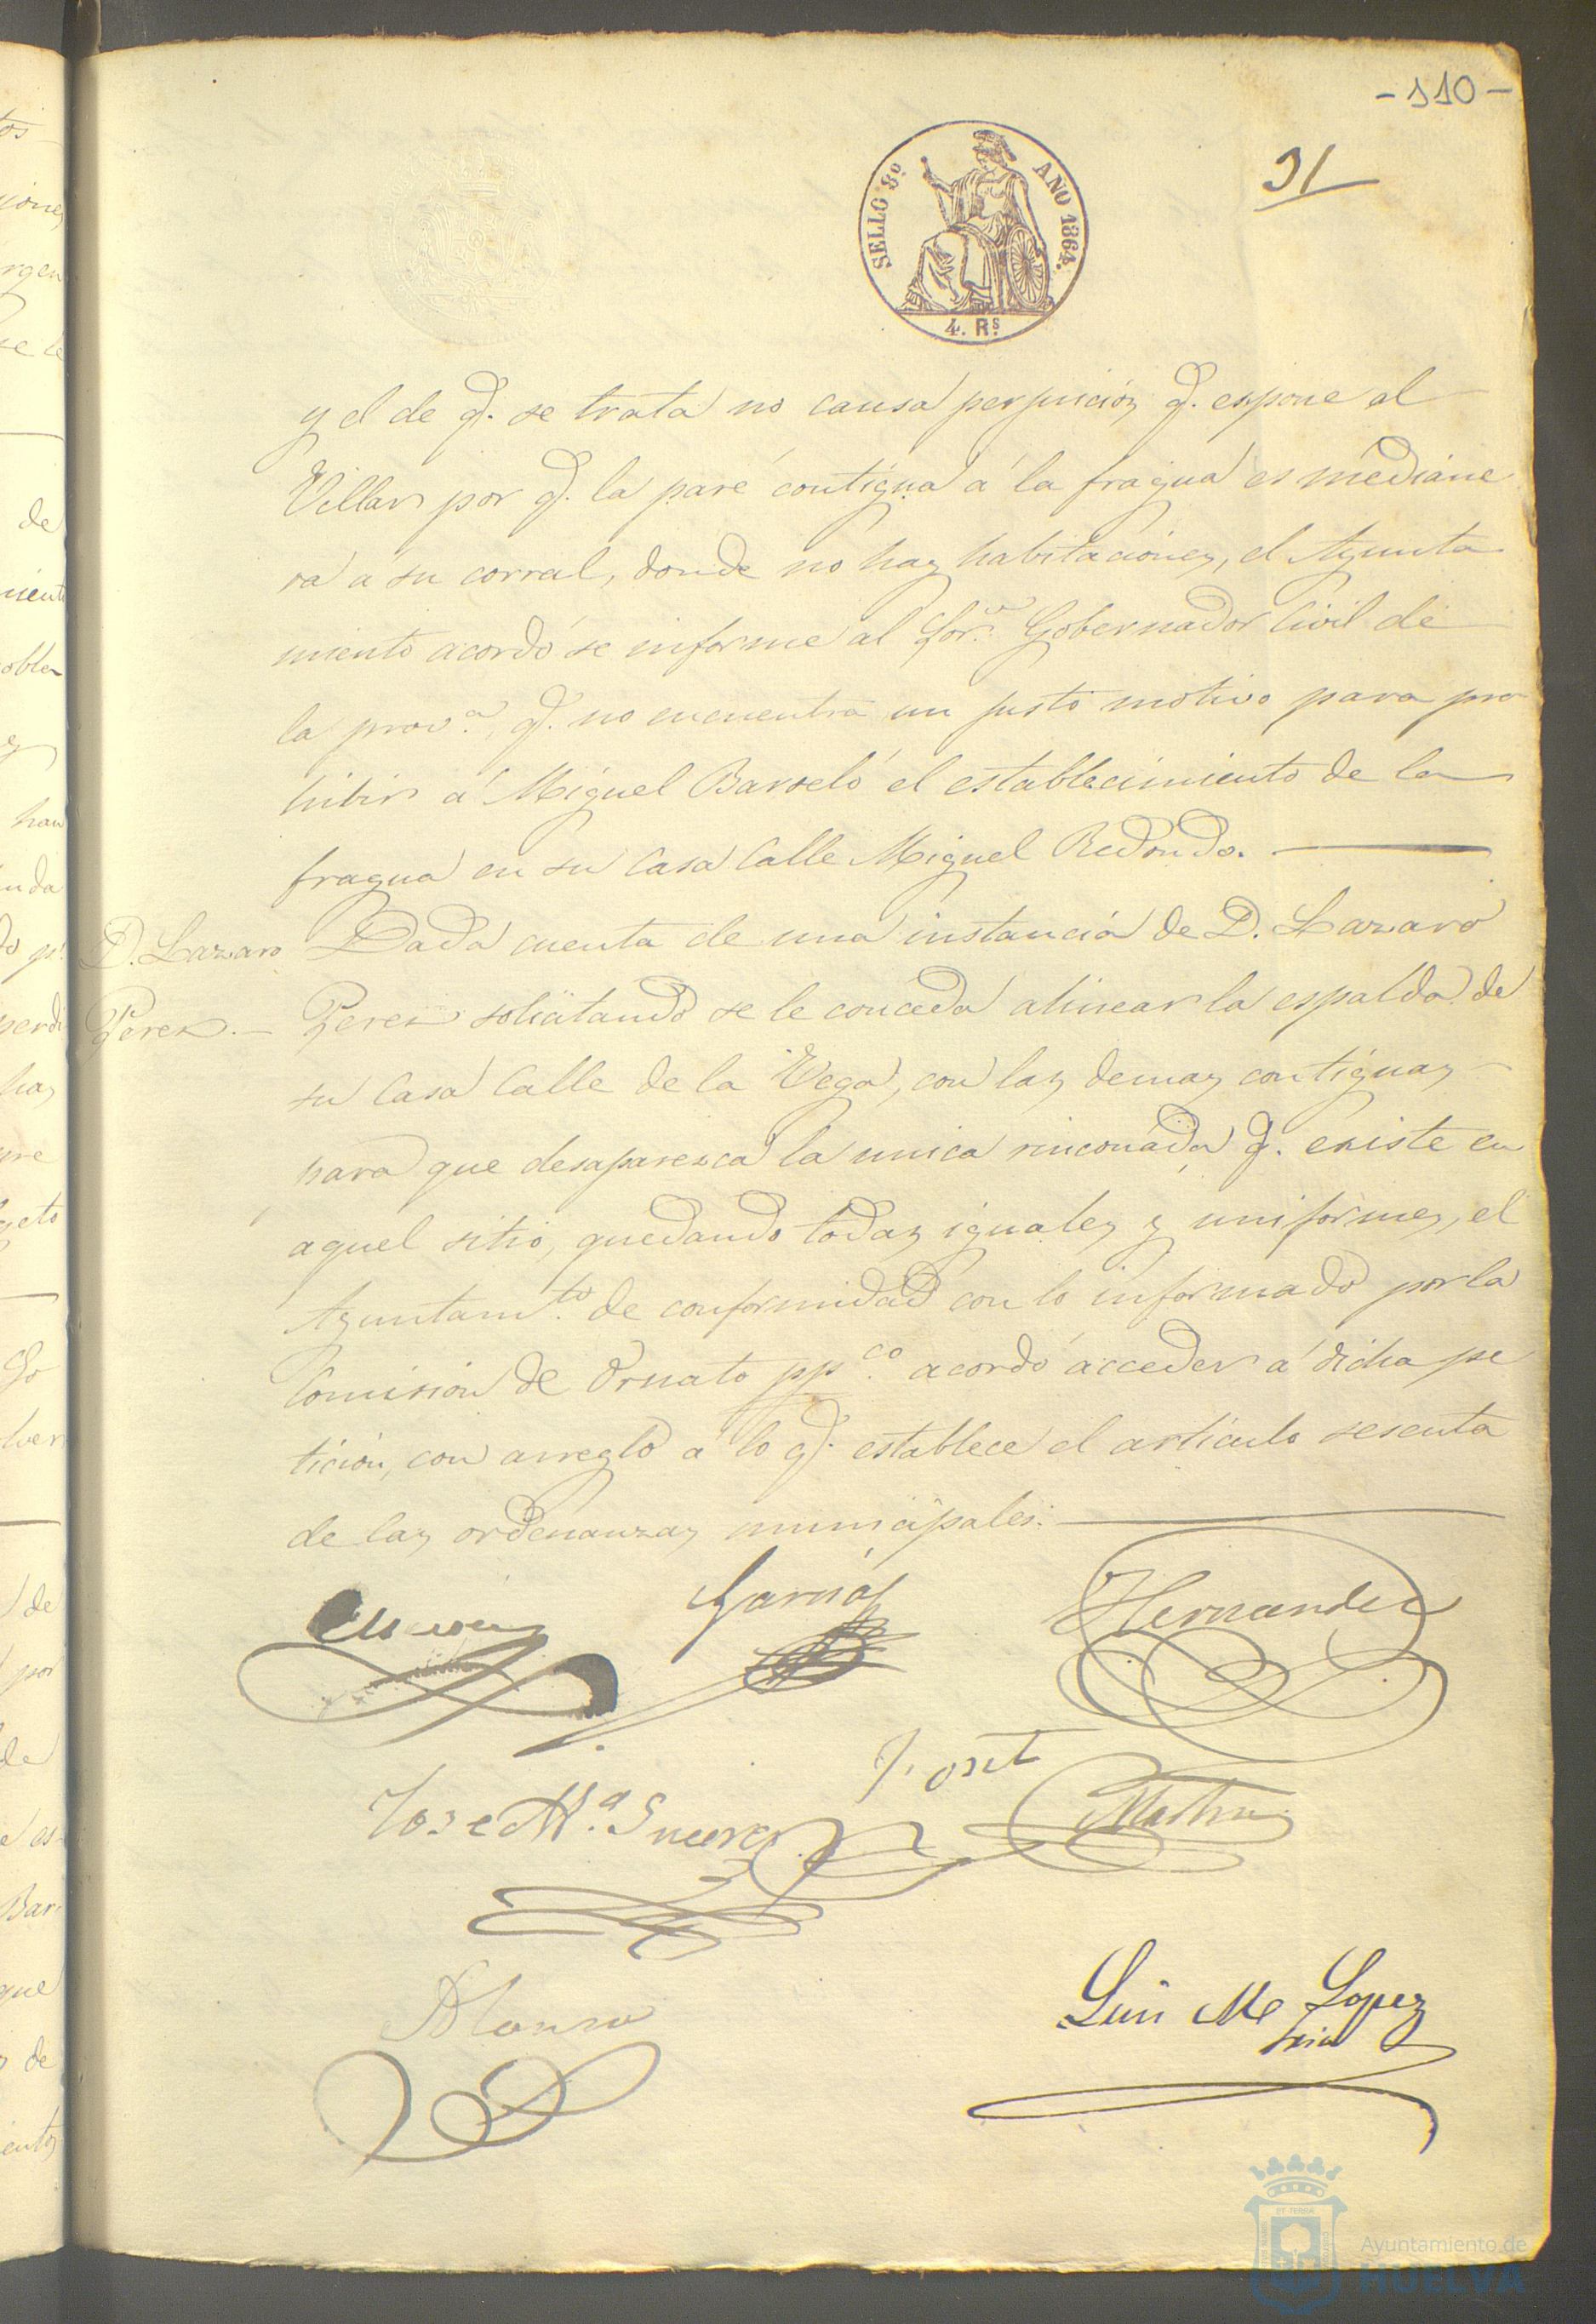 -110-
91
SELLO 8º AÑO 1864.
4. Rˢ
y el de q. se trata no causa perjuicios q. espone el
Villar por q. la paré contigua á la fragua es mediane
ra a su corral, donde no hay habitaciones, el Ayunta
miento acordó se informe al Gobernador Civil de
la provᵃ., q. no encuentra un justo motivo para pro
hibir á Miguel Barseló el establecimiento de la
fragua en su casa Calle Miguel Redondo.
D. Lazaro
Perez.
Dada cuenta de una instancia de D. Lazaro
Perez solicitando se le conceda alinear la espalda de
su Casa Calle de la Vega, con las demas contiguas
para que desaparezca la unica rinconada q. existe en
aquel sitio, quedando todas iguales y uniformes, el
Ayuntamᵗᵒ. de conformidad con lo informado por la
Comision de Ornato ppᶜᵒ. acordó acceder á dicha pe
ticion, con arreglo a lo q. establece el articulo sesenta
de las ordenanzas municipales.
Garcia
Hernandez
Jose Mª. Suarez
Alonso
Luis M Lopez
Srio
Ayuntamiento de
HUELVA